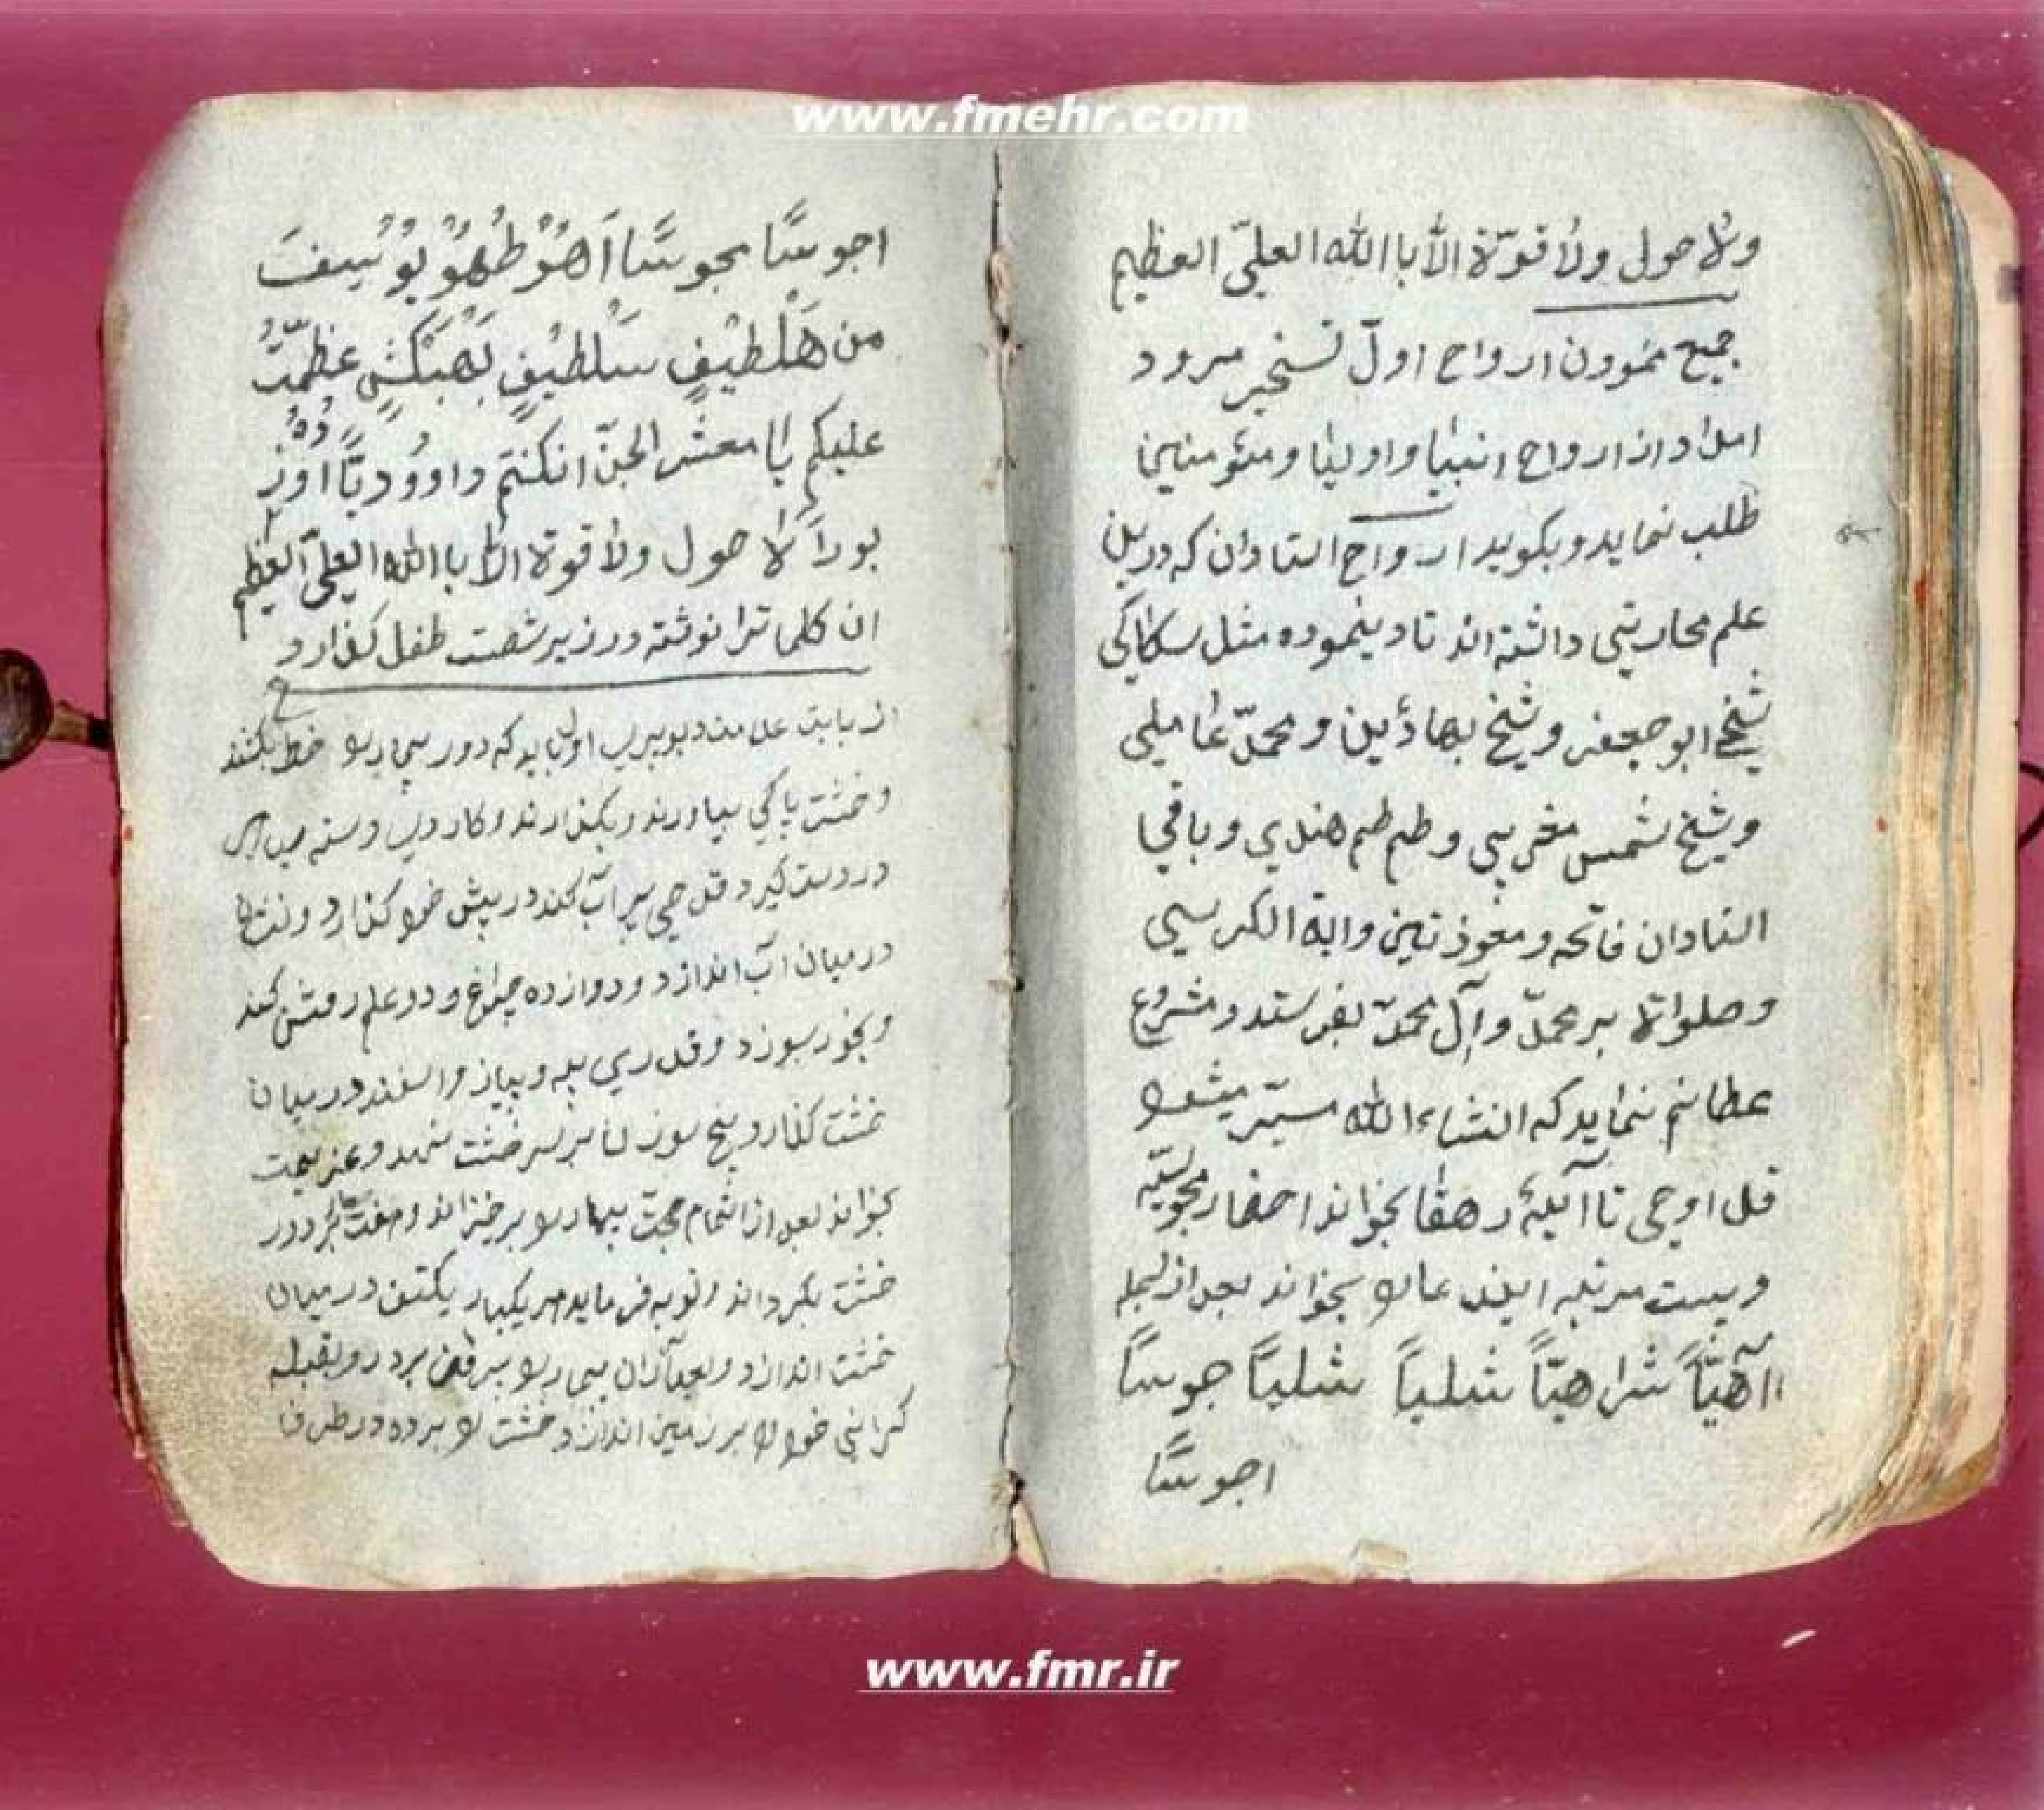 www.fmehr.com
ولا حول ولا قوّة الّا باالله العلیّ العظیم
جمیع نموون ارواح اولّ تسخیر میرود
امداد از ارواح انبیا و اولیا و مئومنین
طلب نماید و بکوید ارواح استادان که در این
علم محاربتی داشته اند تا دینموده مثل سکاکی
شیخ ابو جعفر و شیخ بهادین و محمدّ عاملی
و شیخ شمس مغربی و طم طم هندی و باقی
استادان فاتحه و معوذتین و ایة الکرسیی
و صلواته بر محمدّ و آل محمدّ بفرستد و مشروع
عطانم نماید که انشاءالله میسّر میشود
قل اوحی تا آیهٔ رهقا بخواند احضار مجوسیّه
و بیست مرتبه ایند عارا بخواند بعد از بسمله
آهیّاً شراهیّاً شلیاً شلیاً جوساً
اجوساً
اجوساً مجوساً اَهُوْ طُهُوْ یُوْسِفَ
من هَلْطیْفٍ سَلْطیْفٍ بَهَبَکْشٍ عظمّتُ
علیکم یا معشر الجنّ انکنتم داوودیّاً اوز
بوراً لا حول ولا قوة الا باالله العلیّ العظیم
ان کلماترا نوشته در زیر شصت طفل کذارد
از بابت علامت دبوبیری اول باید که دور بیمار را خط بکشند
و خشت پاکی بیاورند و بکذارند و کارد
در دست کیرد قدحی پر آب کند در پیش خود کذارد و
در میان آب اندازد و دوازده چراغ و دو علم روشن کند
و بخور سوزد و قدری پیه و پیاز و اسفند در میان
خشت کذارد پنج سوزن بر سر خشت نهد و عزیمت
بخواند بعد از اتمام حجت بیمار را برخیزاند و هفت کر دور
خشت بکرداند و توبه فرماید هر یکبار یکتف در میان
خشت اندازد و بعد آزان بیمار را برد رو بقبله
خود را بر زمین اندازد خشت را برده در طرف
www.fmr.ir